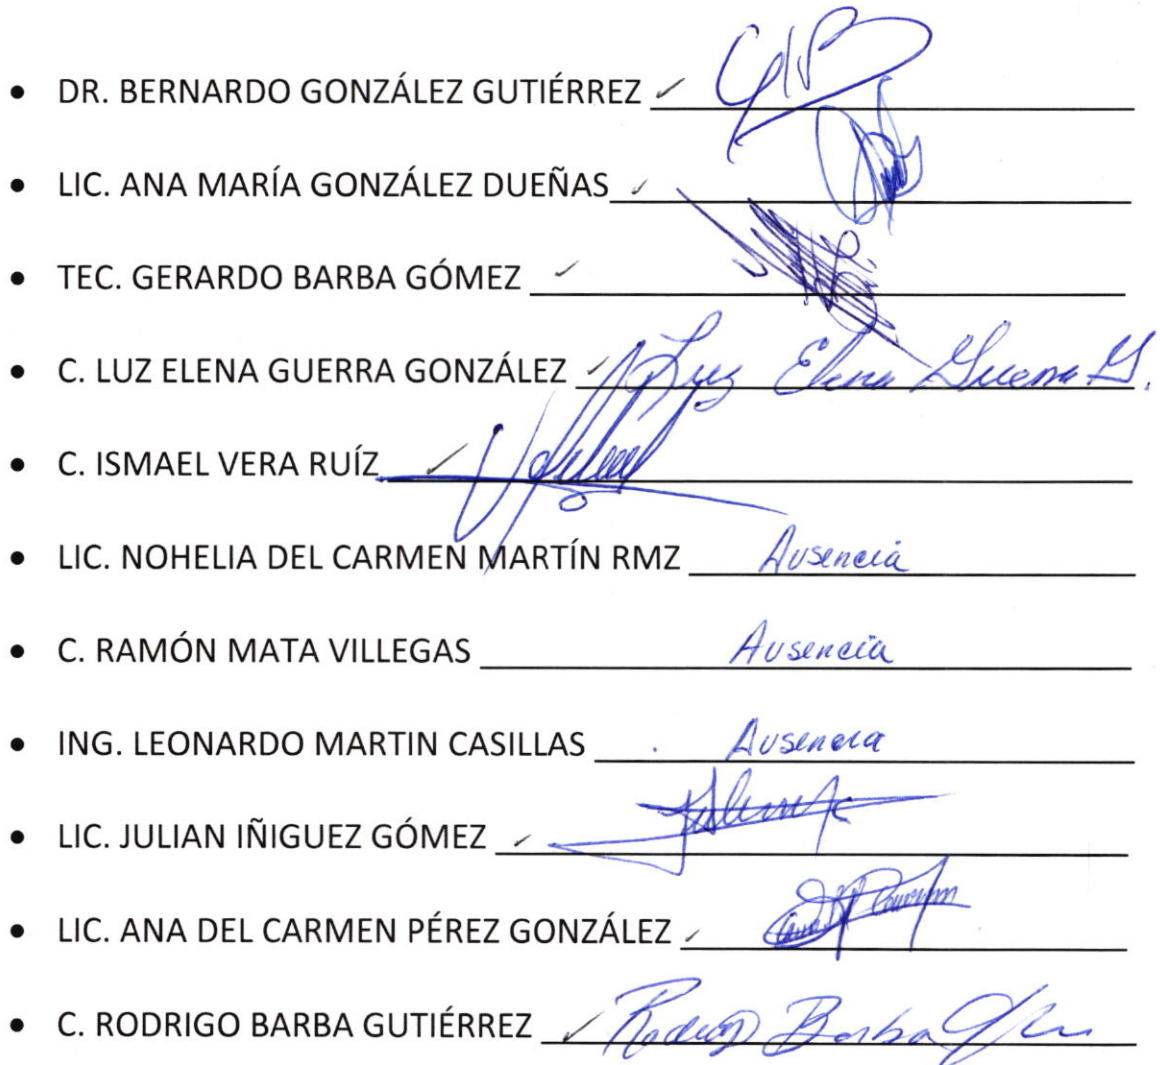 • DR. BERNARDO GONZÁLEZ GUTIÉRREZ
• LIC. ANA MARÍA GONZÁLEZ DUEÑAS
• TEC. GERARDO BARBA GÓMEZ
• C. LUZ ELENA GUERRA GONZÁLEZ Luz Elena Guerra G.
• C. ISMAEL VERA RUÍZ
• LIC. NOHELIA DEL CARMEN MARTÍN RMZ Ausencia
• C. RAMÓN MATA VILLEGAS Ausencia
• ING. LEONARDO MARTIN CASILLAS Ausencia
• LIC. JULIAN IÑIGUEZ GÓMEZ
• LIC. ANA DEL CARMEN PÉREZ GONZÁLEZ
• C. RODRIGO BARBA GUTIÉRREZ Rodrigo Barba